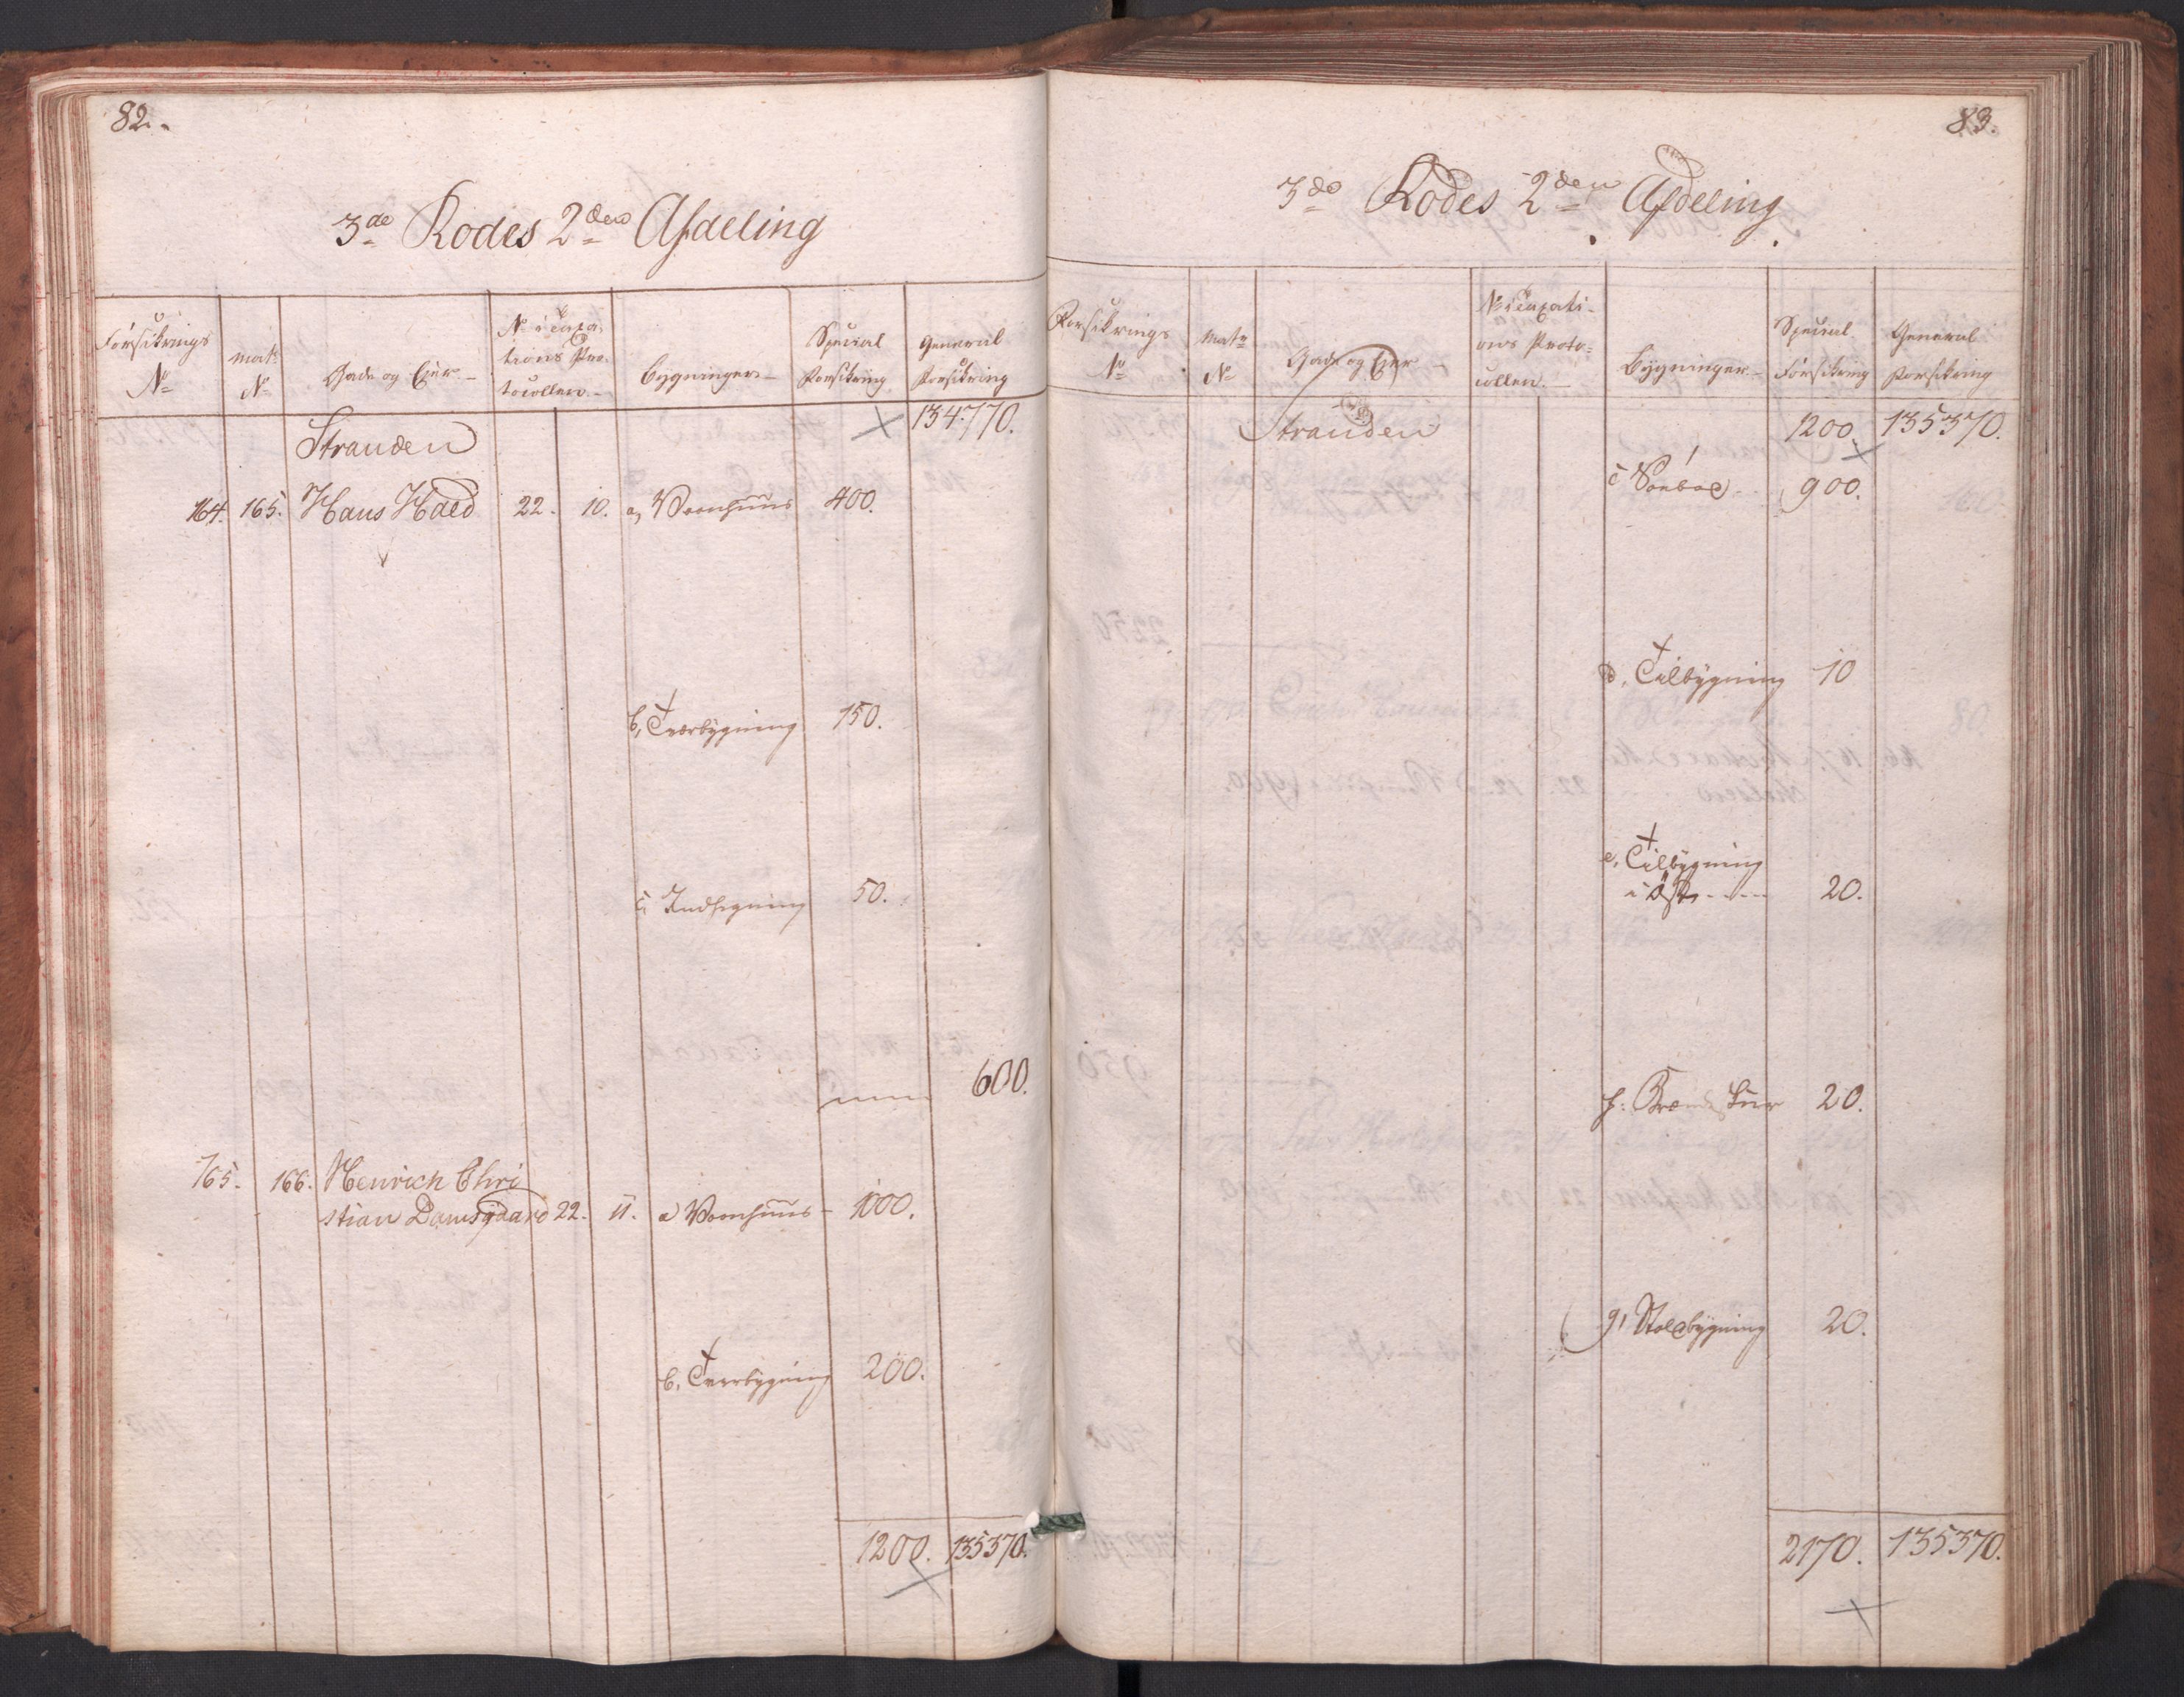 82.
3de Rodes 2den Afdeling
Forsikrings No
Mat: No
Gade og Eier
No i Taxations Protocollen
Bygninger
Special Forsikring
General Forsikring
134770.
Stranden
164. 165. Hans 22. 10. a, Vaanhuus 400.
b, Tverbygning 150.
c, Indhegning 50.
600.
165. 166. Henrich Chri
stian Damsgaard 22. 11. a Vaanhuus 1000.
b, Tverbygning 200.
1200. 135370.
83.
3de Rodes 2den Afdeling
Forsikrings No
Matr No
Gade og Eier
No i Taxati-
ons Proto-
collen.
Bygninger
Special Forsikring
General Forsikring
Stranden 1200. 135370.
c Søeboe 900.
d, Tilbygning 10
e, Tilbygning
i Øst 20.
f: Brændeskuur 20.
g, Stolebygning 20.
2170. 135370.